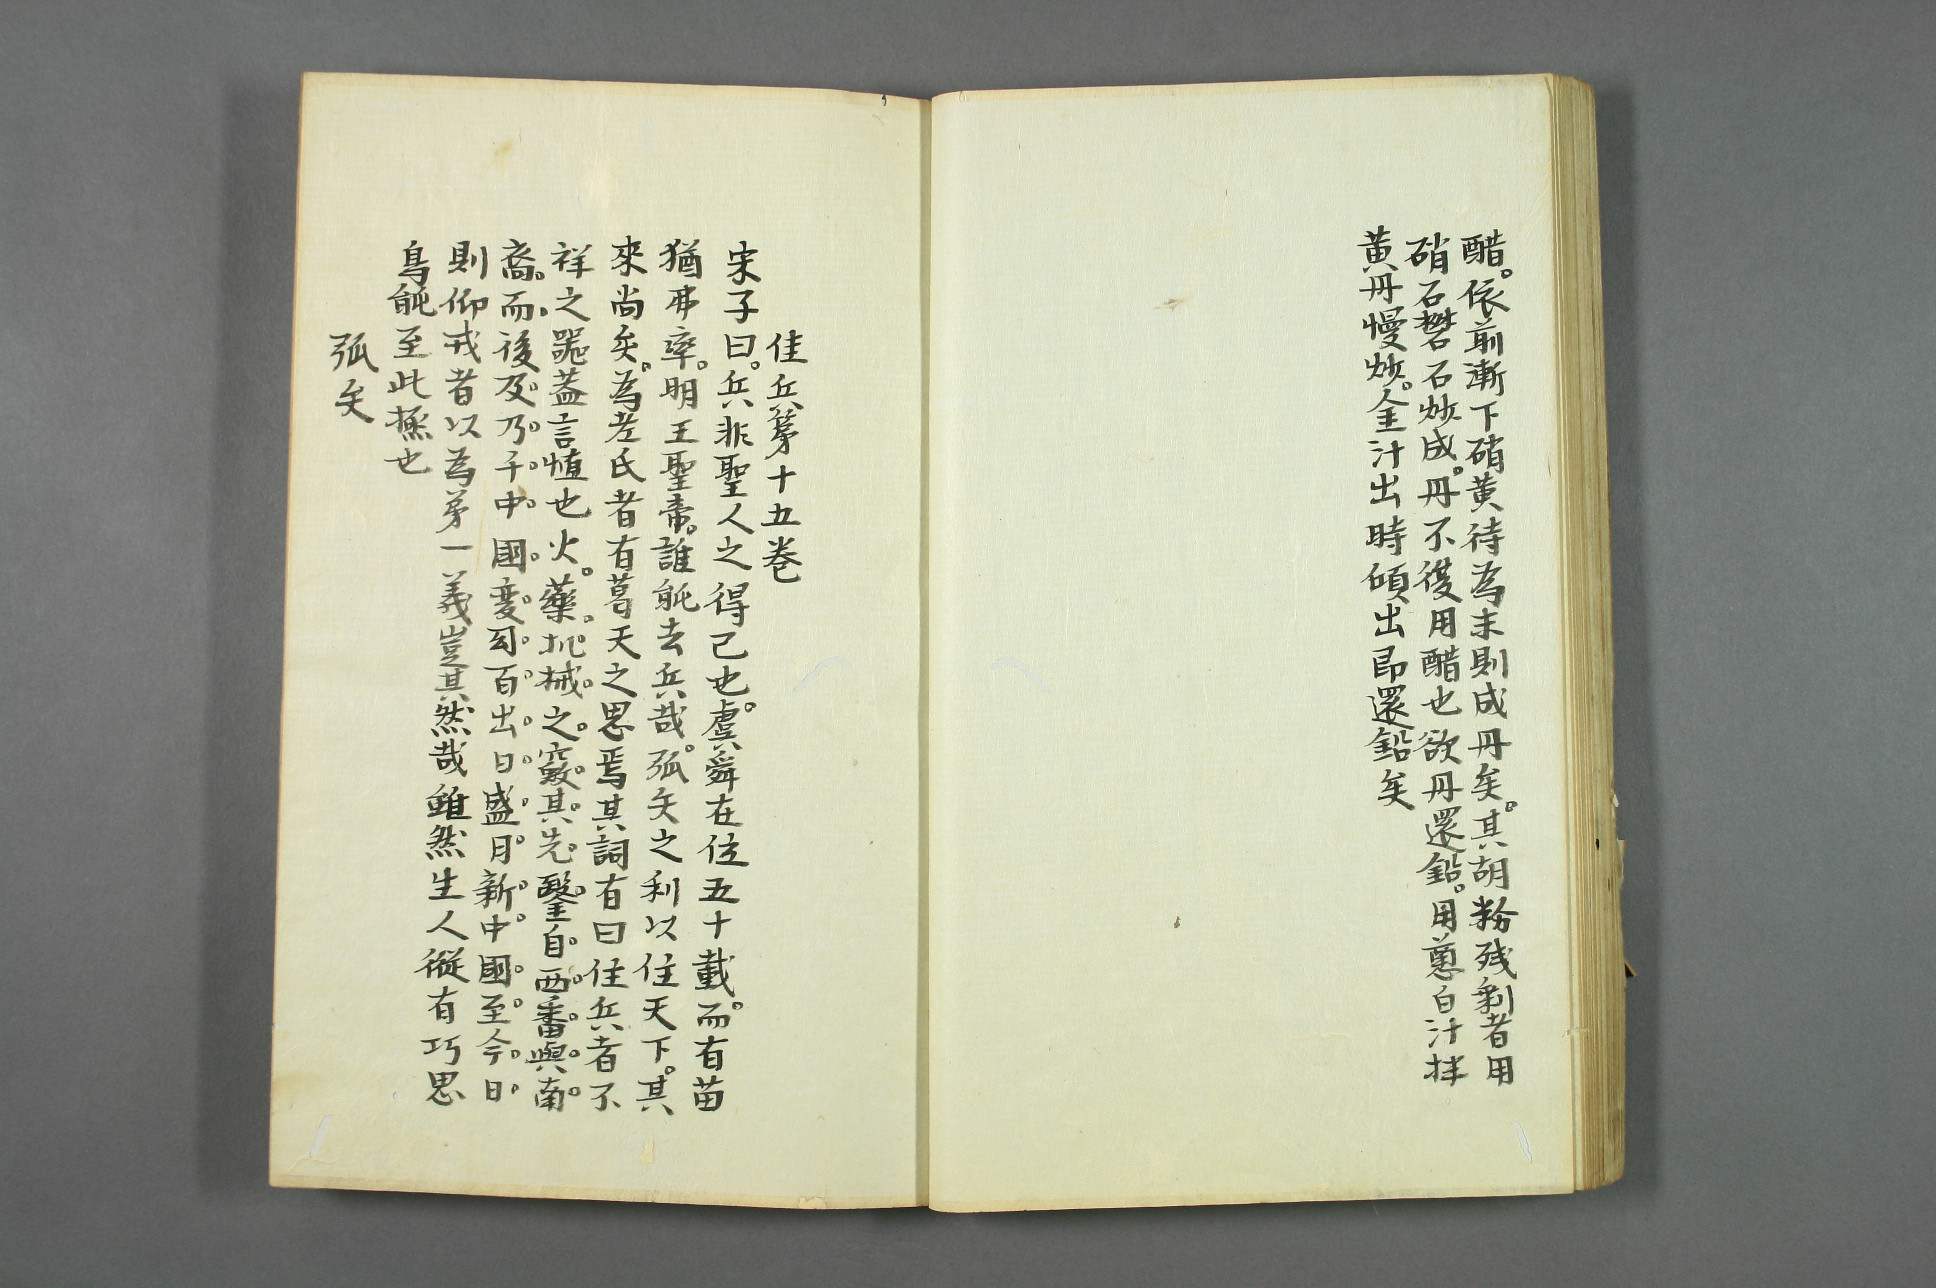 醋。依前漸下硝黄待為末則成丹矣。其胡粉残剰者用
硝石礬石炒成。丹不復用醋也欲丹還鉛。用蔥白汁拌
黄丹慢炒。金汁出時傾出即還鉛矣
佳兵第十五巻
宋子曰。兵非聖人之得已也。虞舜在位五十載。而有苗
猶弗率。明王聖帝。誰能去兵哉。弧矢之利以佳天下。其
來尚矣。為老氏者有葛天之思焉其詞有曰佳兵者不
祥之噐葢言慎也火。藥。机械。之。竅。其。先。鑿。自。西。番。與。南。
裔。而。後。及。乃。于。中。國。変。幻。百。出。日。盛。月。新。中。國。至。今。日。
則仰戒者以為苐一義豈其然哉雖然生人縱有巧思
烏能至此極也
弧矢